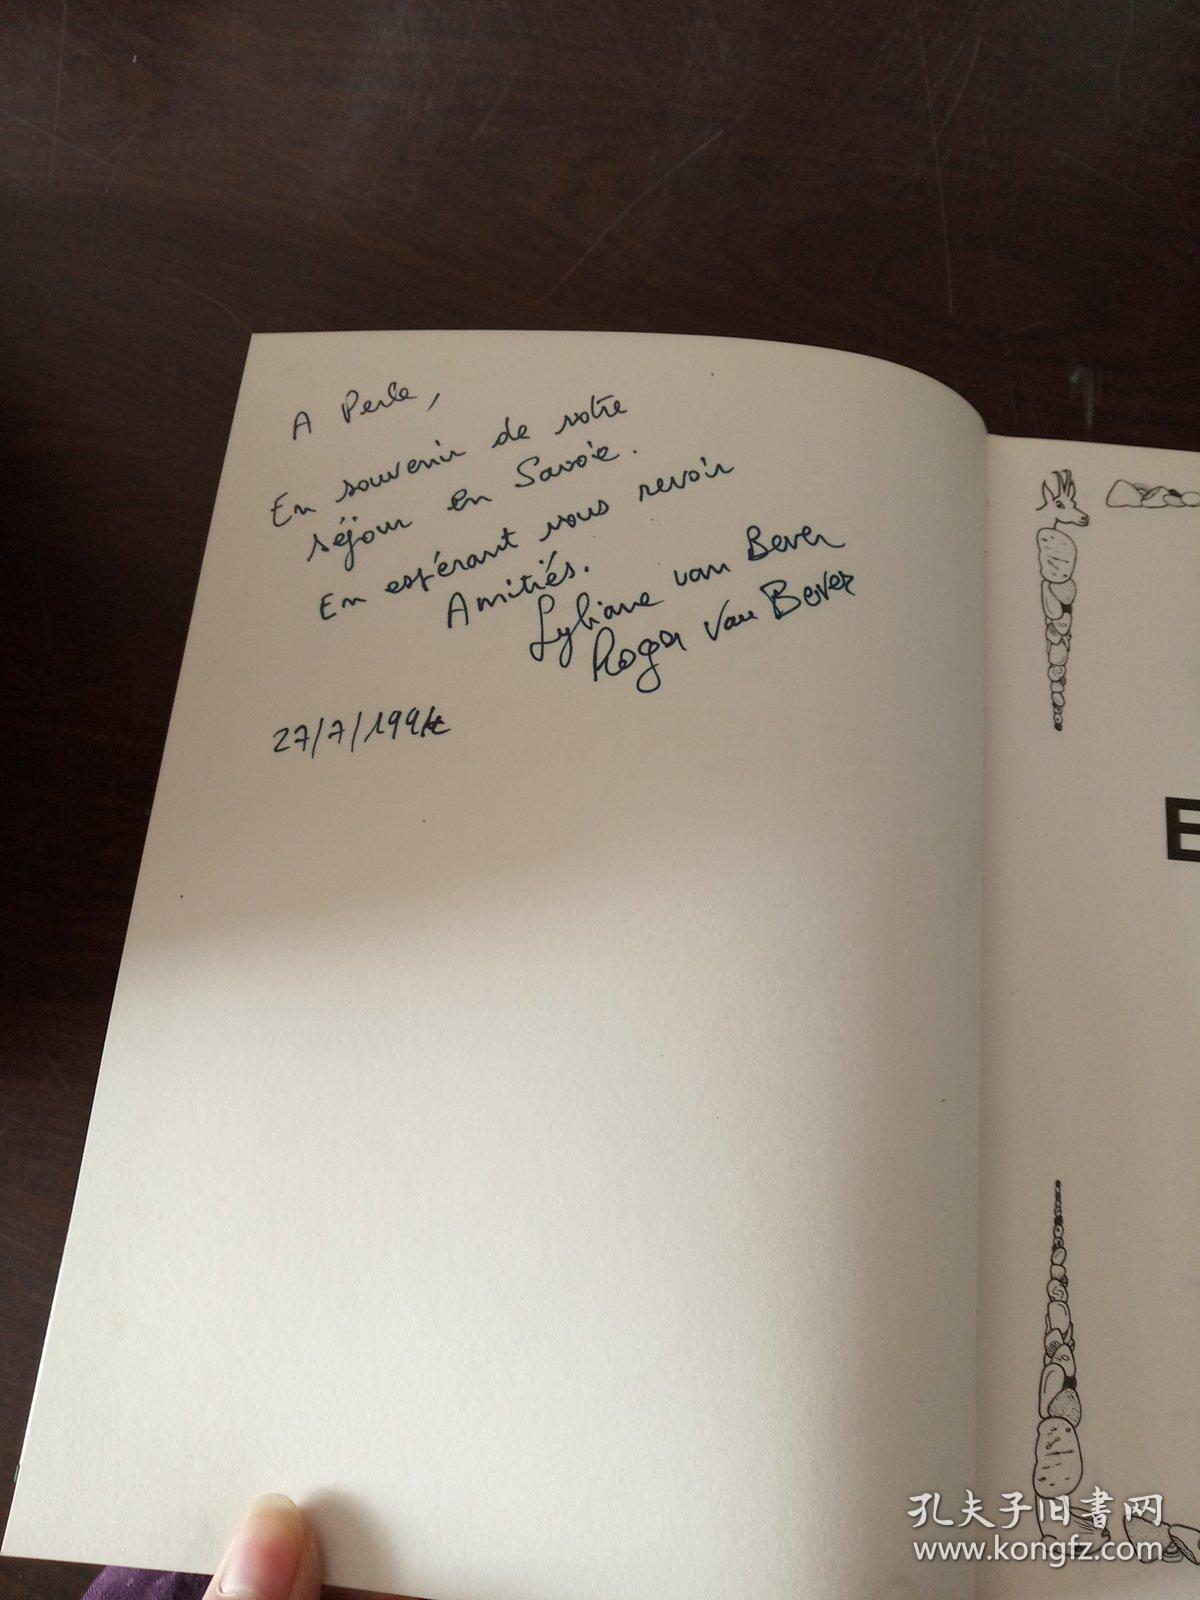 A Perle,
En souvenir de votre
séjour en Savoie.
En espérant vous revoir
Amitiés.
Lyliane van Bever
Roger Van Bever
27/7/1994
E
孔夫子旧书网
www.kongfz.com